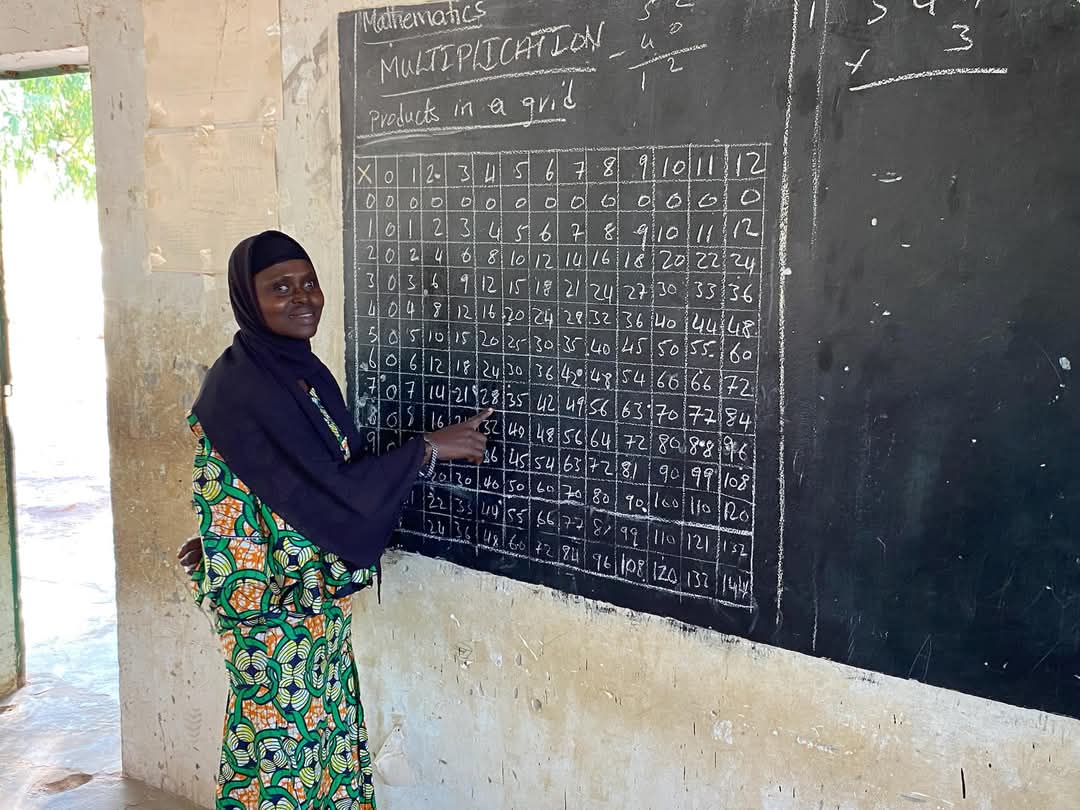 Mathematics
MULTIPLICATION
Products in a grid
5 2
- 4 0
1 2
3
x
X 0 1 2 3 4 5 6 7 8 9 10 11 12
0 0 0 0 0 0 0 0 0 0 0 0 0 0
1 0 1 2 3 4 5 6 7 8 9 10 11 12
2 0 2 4 6 8 10 12 14 16 18 20 22 24
3 0 3 6 9 12 15 18 21 24 27 30 33 36
4 0 4 8 12 16 20 24 28 32 36 40 44 48
5 0 5 10 15 20 25 30 35 40 45 50 55 60
6 0 6 12 18 24 30 36 42 48 54 60 66 72
7 0 7 14 21 28 35 42 49 56 63 70 77 84
8 0 8 16 32 40 48 56 64 72 80 88 96
9 0 45 54 63 72 81 90 99 108
20 30 40 50 60 70 80 90 100 110 120
22 33 44 55 66 77 88 99 110 121 132
24 36 48 60 72 84 96 108 120 132 144